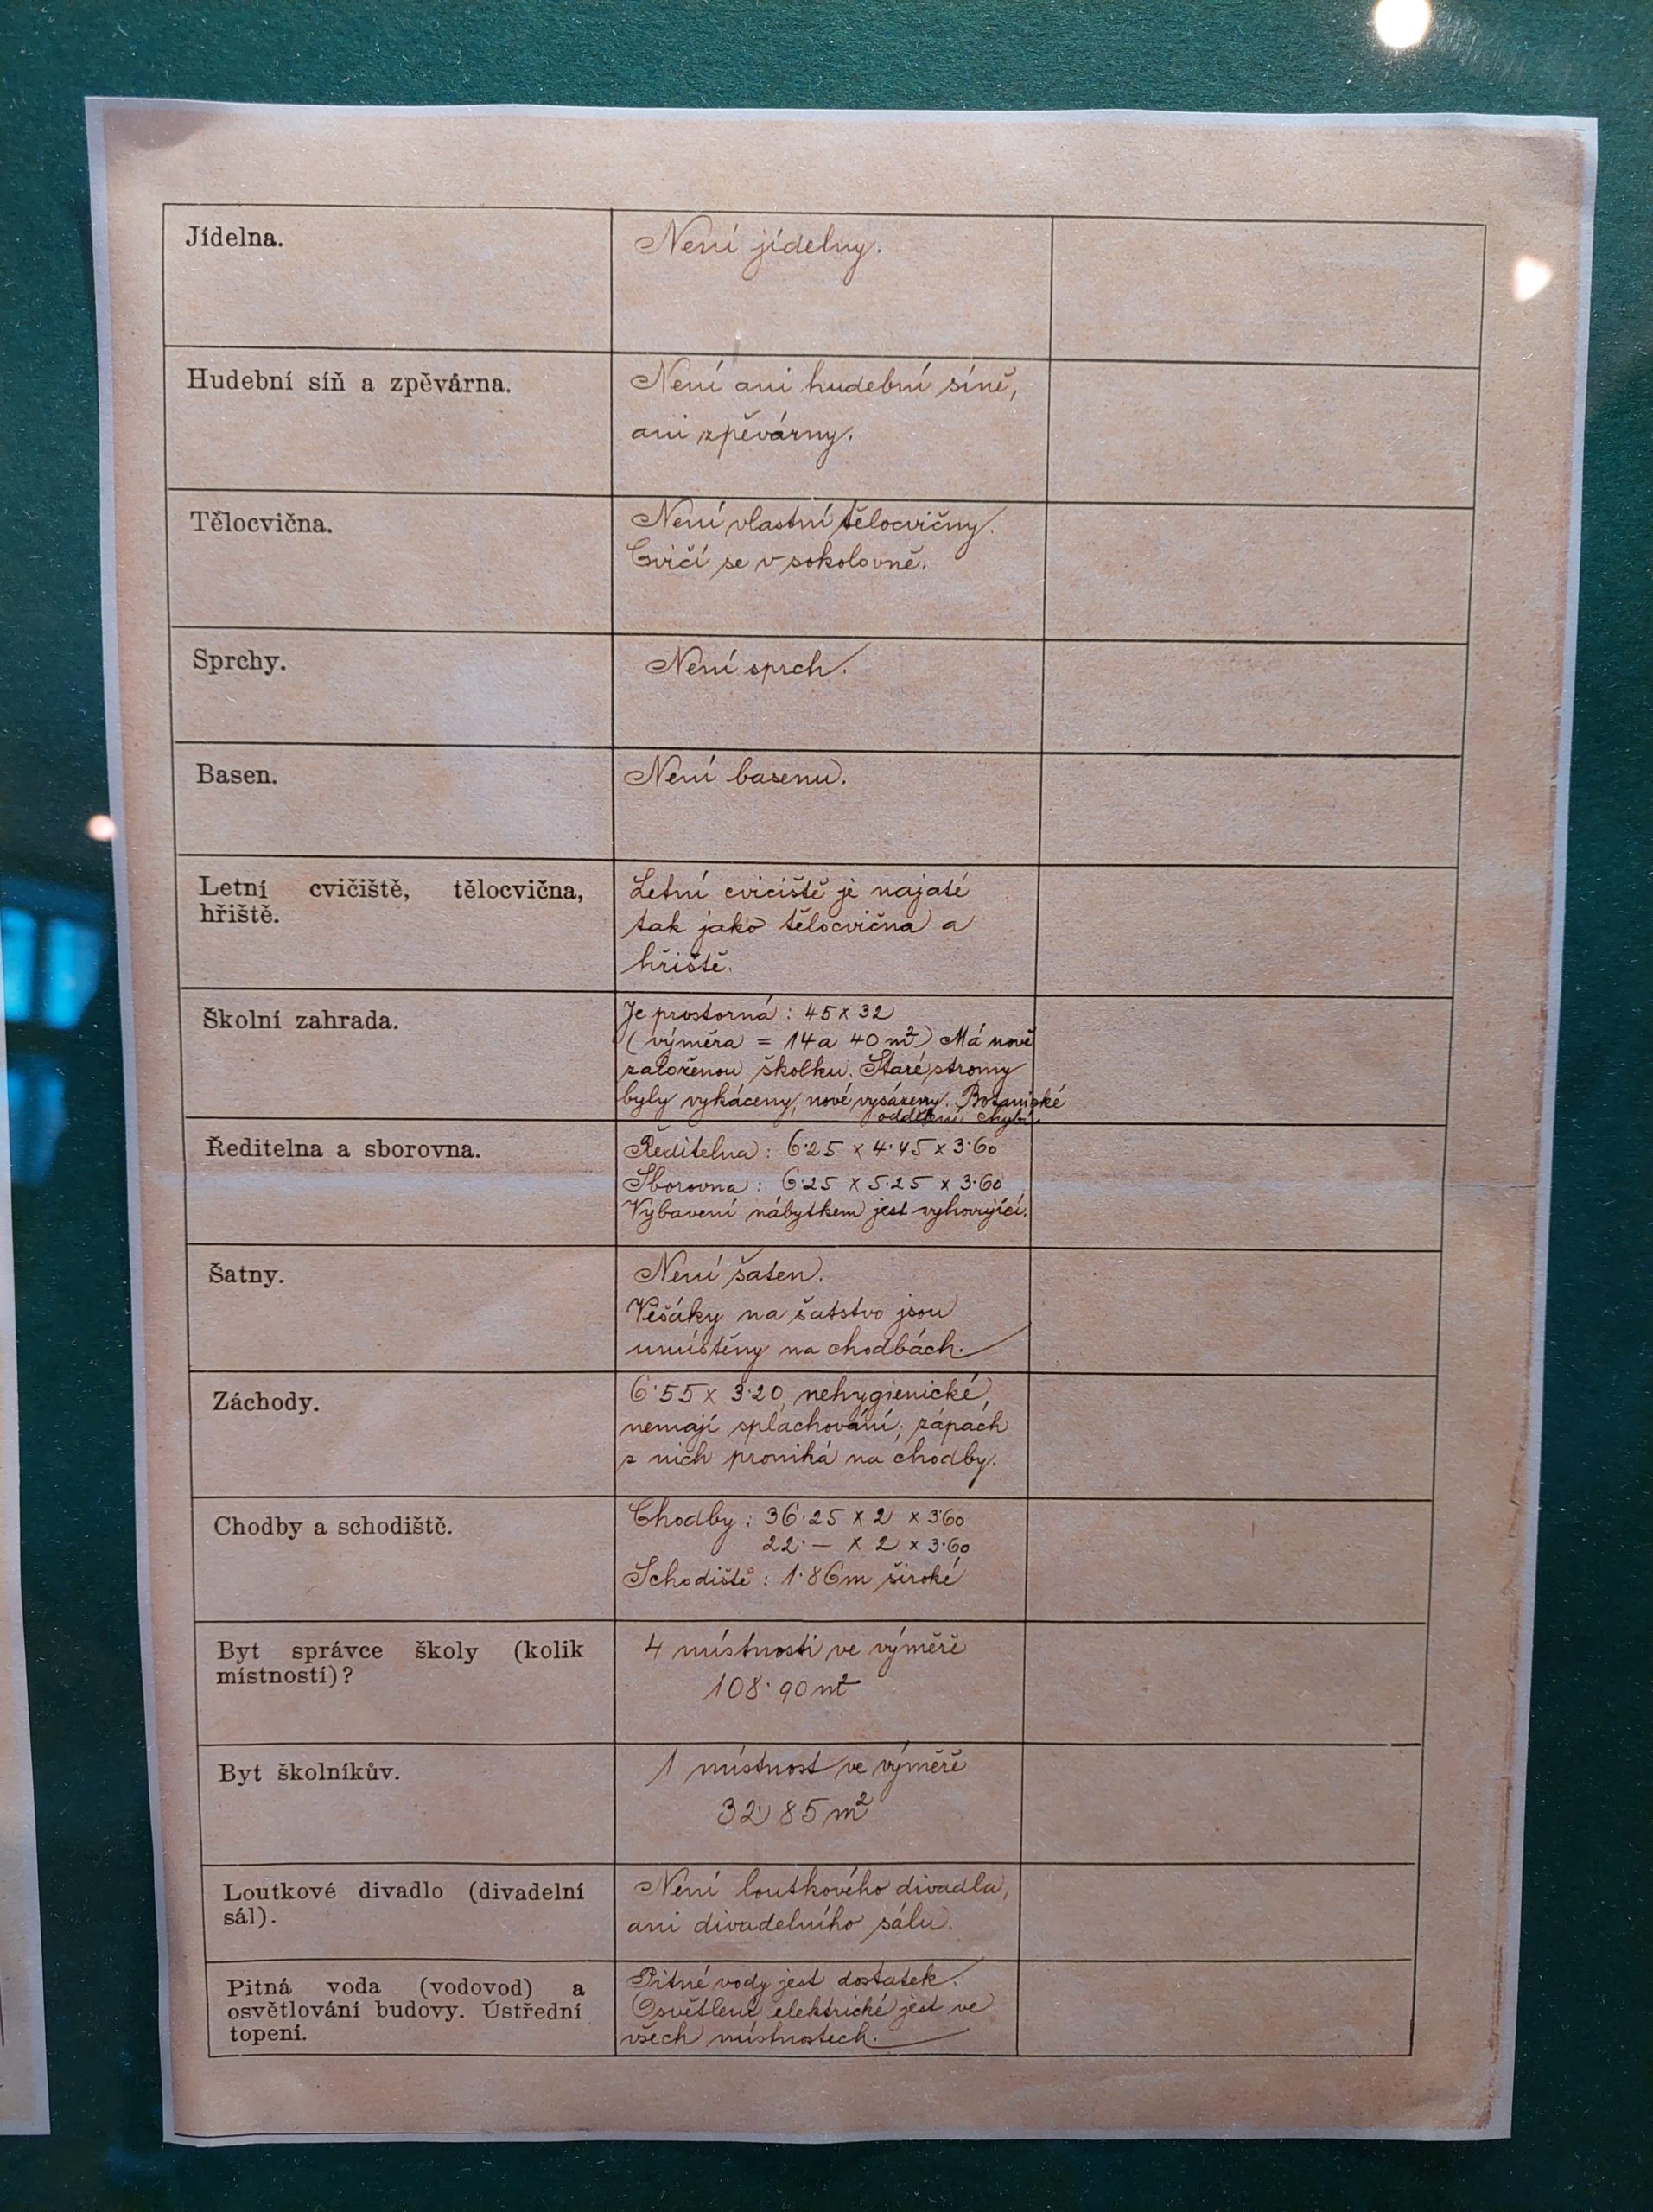 Jídelna.
Není jídelny.
Hudební síň a zpěvárna.
Není ani hudební síně,
ani zpěvárny.
Tělocvična.
Není vlastní tělocvičny.
Cvičí se v sokolovně.
Sprchy.
Není sprch.
Basen.
Není basenu.
Letní cvičiště, tělocvična,
hřiště.
Letní cvičiště je najaté
tak jako tělocvična a
hřiště.
Školní zahrada.
Je prostorná: 45 x 32
(výměra = 14a 40 m²) Má nově
založenou školku. Staré stromy
byly vykáceny, nové vysázeny. Botanické
oddělení chybí.
Ředitelna a sborovna.
Ředitelna: 6·25 x 4·45 x 3·60
Sborovna: 6·25 x 5·25 x 3·60
Vybavení nábytkem jest vyhovující.
Šatny.
Není šaten.
Věšáky na šatstvo jsou
umístěny na chodbách.
Záchody.
6·55 x 3·20, nehygienické,
nemají splachování, zápach
z nich proniká na chodby.
Chodby a schodiště.
Chodby: 36·25 x 2 x 3·60
22·— x 2 x 3·60
Schodiště: 1·86m široké
Byt správce školy (kolik
místností)?
4 místnosti ve výměře
108·90 m²
Byt školníkův.
1 místnost ve výměře
32·85 m²
Loutkové divadlo (divadelní
sál).
Není loutkového divadla,
ani divadelního sálu.
Pitná voda (vodovod) a
osvětlování budovy. Ústřední
topení.
Pitné vody jest dostatek.
Osvětlení elektrické jest ve
všech místnostech.